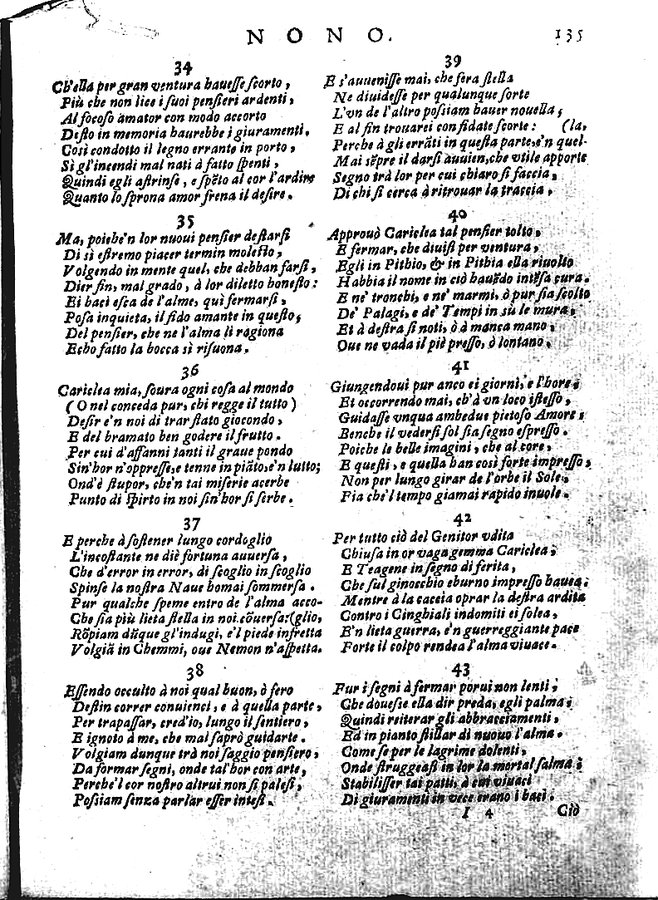 NONO. 135
34
Ch'ella per gran ventura hauesse scorto,
Più che non lice i suoi pensieri ardenti,
Al focoso amator con modo accorto
Desto in memoria haurebbe i giuramenti.
Così condotto il legno errante in porto,
Sì gl'incendi mal nati à fatto spenti,
Quindi egli astrinse, e spẽto al cor l'ardire
Quanto lo sprona amor frena il desire.
35
Ma, poiche'n lor nuoui pensier destarsi
Di sì estremo piacer termin molesto,
Volgendo in mente quel, che debban farsi,
Dier fin, mal grado, à lor diletto honesto:
Ei baci esca de l'alme, qui fermarsi,
Posa inquieta, il fido amante in questo,
Del pensier, che ne l'alma li ragiona
Echo fatto la bocca sì risuona.
36
Cariclea mia, soura ogni cosa al mondo
(O nel conceda pur, chi regge il tutto)
Desir e'n noi di trar stato giocondo,
E del bramato ben godere il frutto.
Per cui d'affanni tanti il graue pondo
Sin'hor n'oppresse, e tenne in piãto, e'n lutto;
Ond'è stupor, che'n tai miserie acerbe
Punto di spirto in noi sin'hor si serbe.
37
E perche à sostener lungo cordoglio
L'incostante ne diè fortuna auuersa,
Che d'error in error, di scoglio in scoglio
Spinse la nostra Naue homai sommersa.
Pur qualche speme entro de l'alma acco-
Che sia più lieta stella in noi cõuersa: (glio,
Rõpiam dũque gl'indugi, e'l piede infretta
Volgiã in Chemmi, oue Nemon n'aspetta.
38
Essendo occulto à noi qual buon, ò fero
Destin correr conuienci, e à quella parte,
Per trapassar, cred'io, lungo il sentiero,
E ignoto à me, che mal saprò guidarte.
Volgiam dunque trà noi saggio pensiero,
Da formar segni, onde tal'hor con arte,
Perche'l cor nostro altrui non si palesi,
Possiam senza parlar esser intesi.
39
E s'auuenisse mai, che fera stella
Ne diuidesse per qualunque sorte
L'vn de l'altro possiam hauer nouella,
E al fin trouarci confidate scorte: (la,
Perche à gli errãti in questa parte, e'n quel-
Mai sẽpre il darsi auuien, che vtile apporte
Segno trà lor per cui chiaro si faccia,
Di chi si cerca à ritrouar la traccia.
40
Approuò Cariclea tal pensier tolto,
E fermar, che diuisi per ventura,
Egli in Pithio, & in Pithia ella riuolto
Habbia il nome in ciò hauẽdo intẽsa cura.
E ne' tronchi, e ne' marmi, ò pur sia scolto
De' Palagi, e de' Tempi in sù le mura,
Et à destra si noti, ò à manca mano,
Oue ne vada il piè presso, ò lontano.
41
Giungendoui pur anco ei giorni, e l'hore;
Et occorrendo mai, ch'à vn loco istesso,
Guidasse vnqua ambedue pietoso Amore;
Benche il vedersi sol sia segno espresso.
Poiche le belle imagini, che al core,
E questi, e quella han così forte impresso,
Non per lungo girar de l'orbe il Sole,
Fia che'l tempo giamai rapido inuole.
42
Per tutto ciò del Genitor vdita
Chiusa in or vaga gemma Cariclea;
E Teagene in segno di ferita,
Che sul ginocchio eburno impresso hauea;
Mentre à la caccia oprar la destra ardita
Contro i Cinghiali indomiti ei solea,
E'n lieta guerra, e'n guerreggiante pace
Forte il colpo rendea l'alma viuace.
43
Fur i segni à fermar porui non lenti;
Che douesse ella dir preda, egli palma;
Quindi reiterar gli abbracciamenti,
Ed in pianto stillar di nuouo l'alma.
Come se per le lagrime dolenti,
Onde struggeasi in lor la mortal salma;
Stabilisser tai patti, à cui viuaci
Di giuramenti in vece erano i baci.
I 4 Ciò